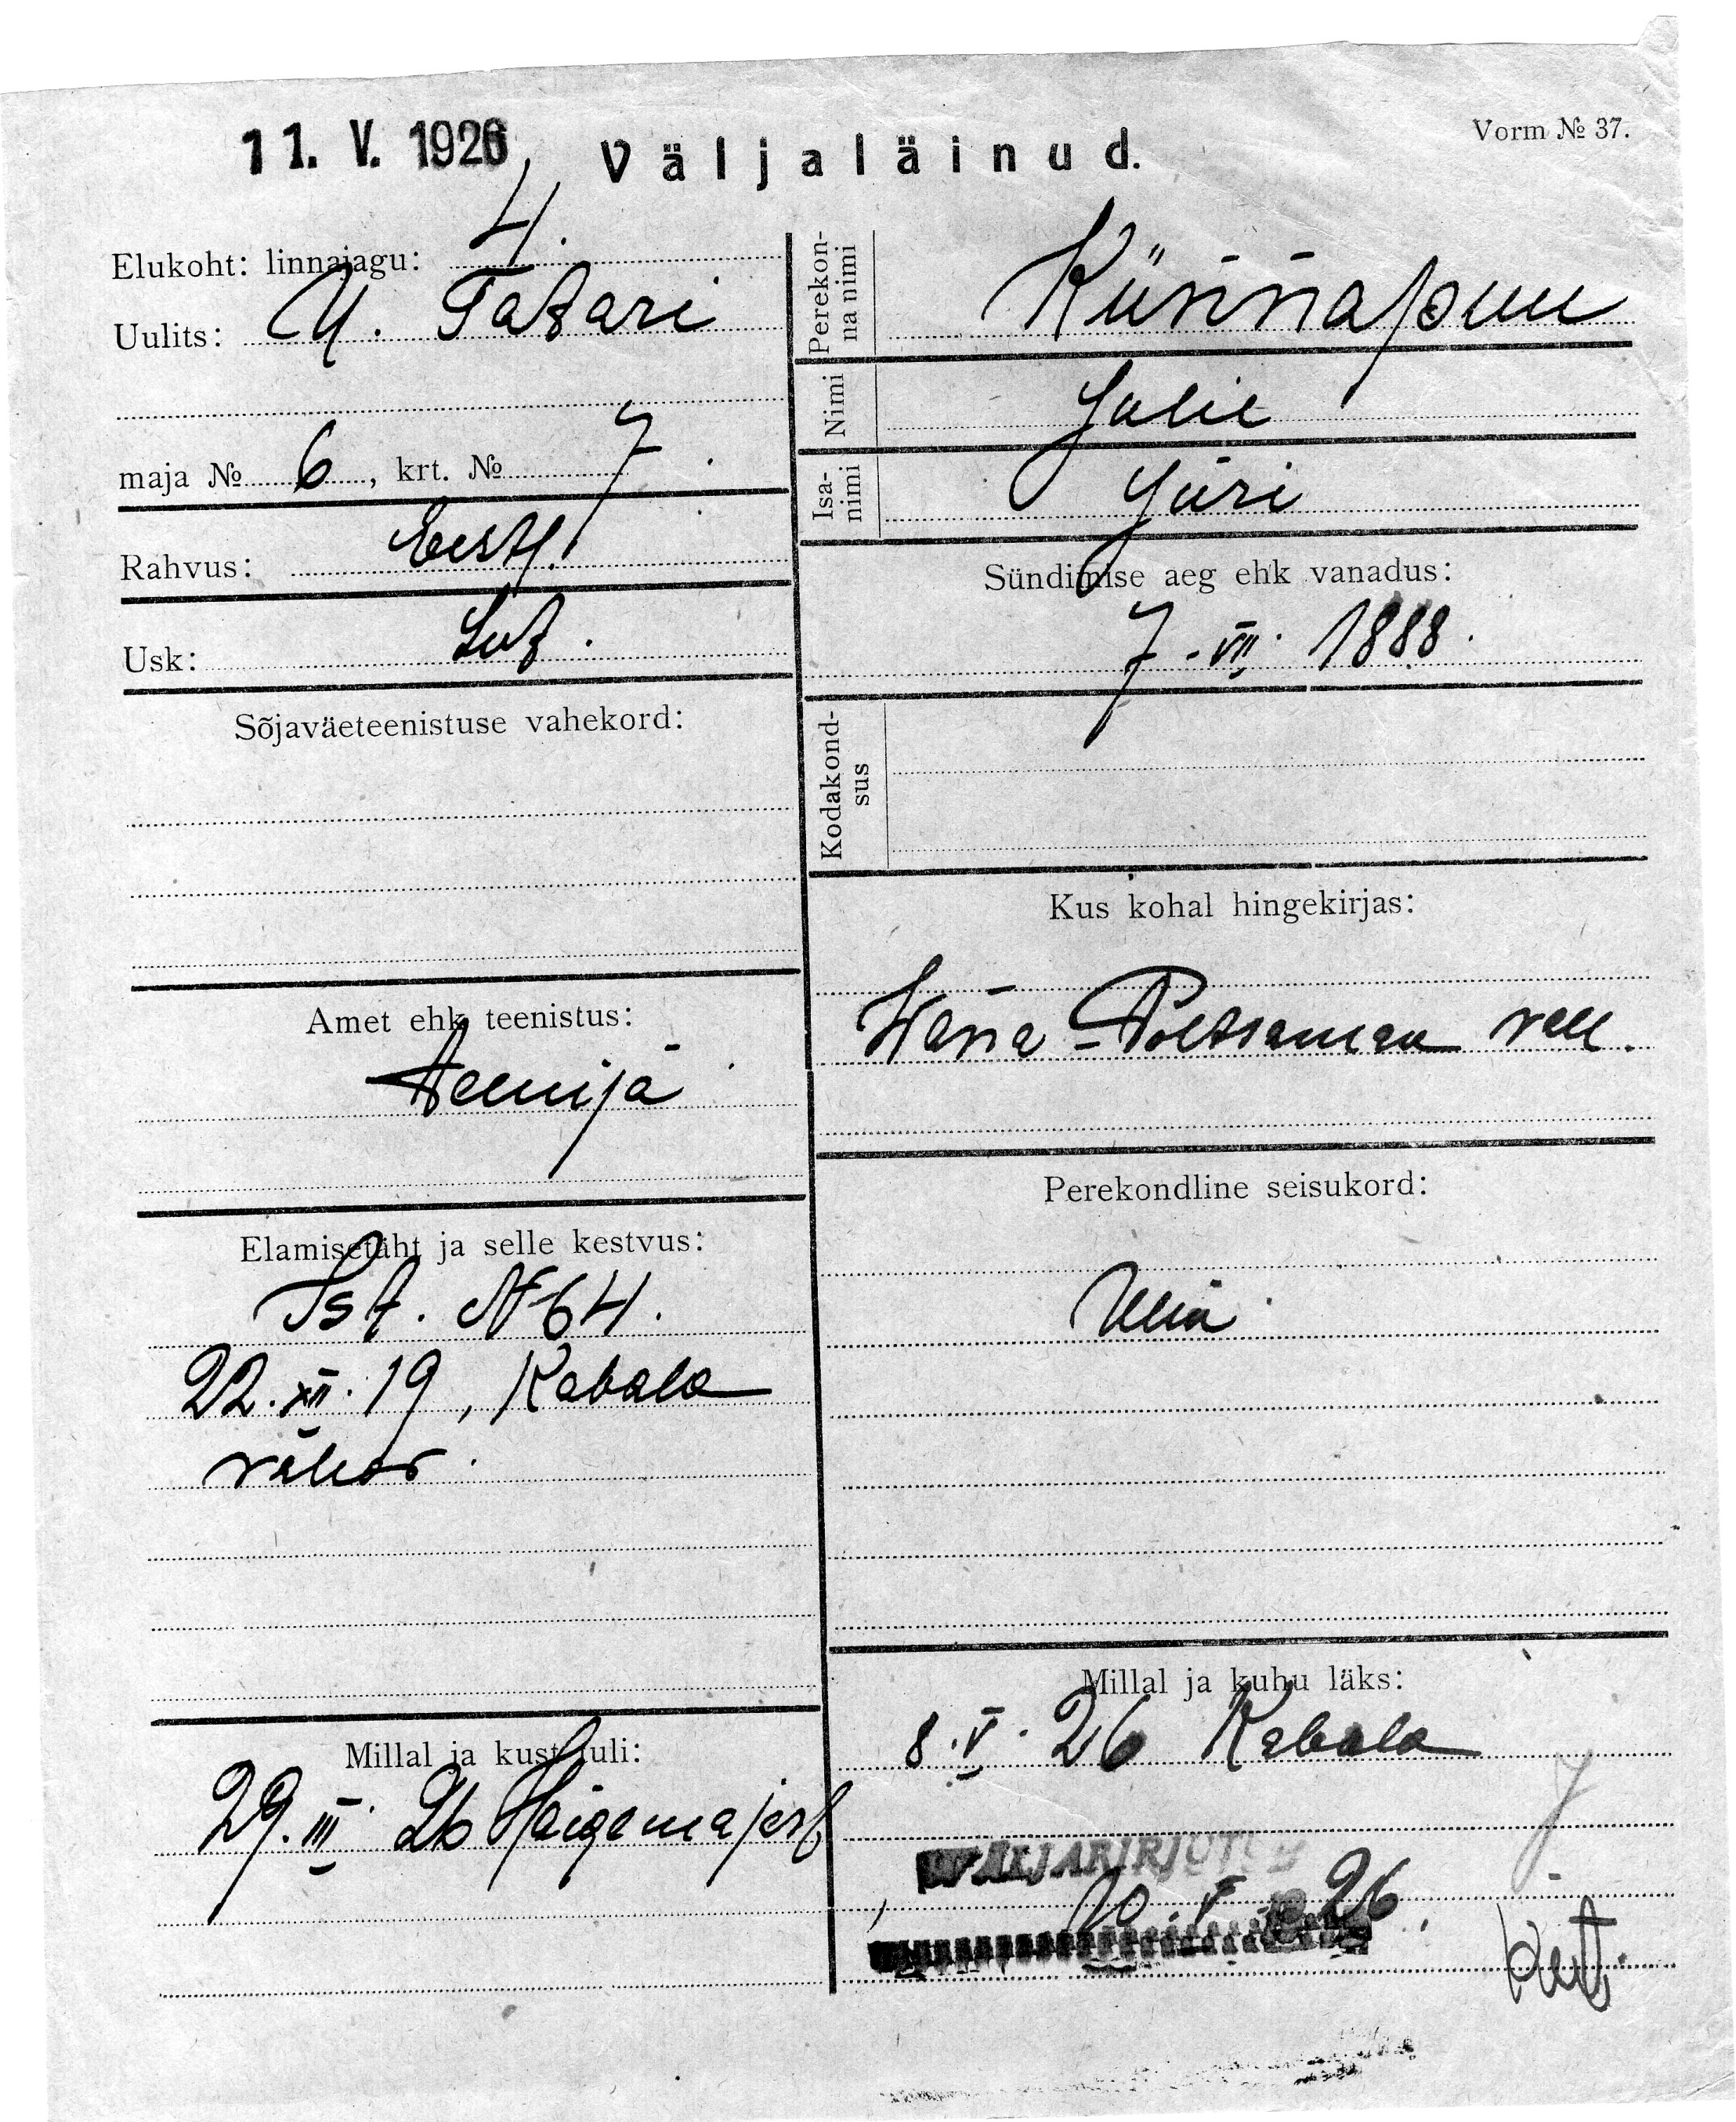 11. V. 1926
Väljaläinud.
Vorm № 37.
Elukoht: linnajagu: 4.
Uulits: U. Tatari
maja № 6, krt. № 7.
Rahvus: Eestl.
Usk: Lut.
Sõjaväeteenistuse vahekord:
Amet ehk teenistus:
teenija
Elamisetäht ja selle kestvus:
Ist. № 64.
22. XII. 19, Kabala
Millal ja kust tuli:
29. III. 26 Haigemajast
Perekon-
na nimi
Künnapuu
Nimi Julie
Isa-
nimi
Jüri
Sündimise aeg ehk vanadus:
7. VII. 1888.
Kodakond-
sus
Kus kohal hingekirjas:
Wana-Põltsamaa vall.
Perekondline seisukord:
Millal ja kuhu läks:
8. V. 26 Kabala
WÄLJAKIRJUTUD
10. V 26.